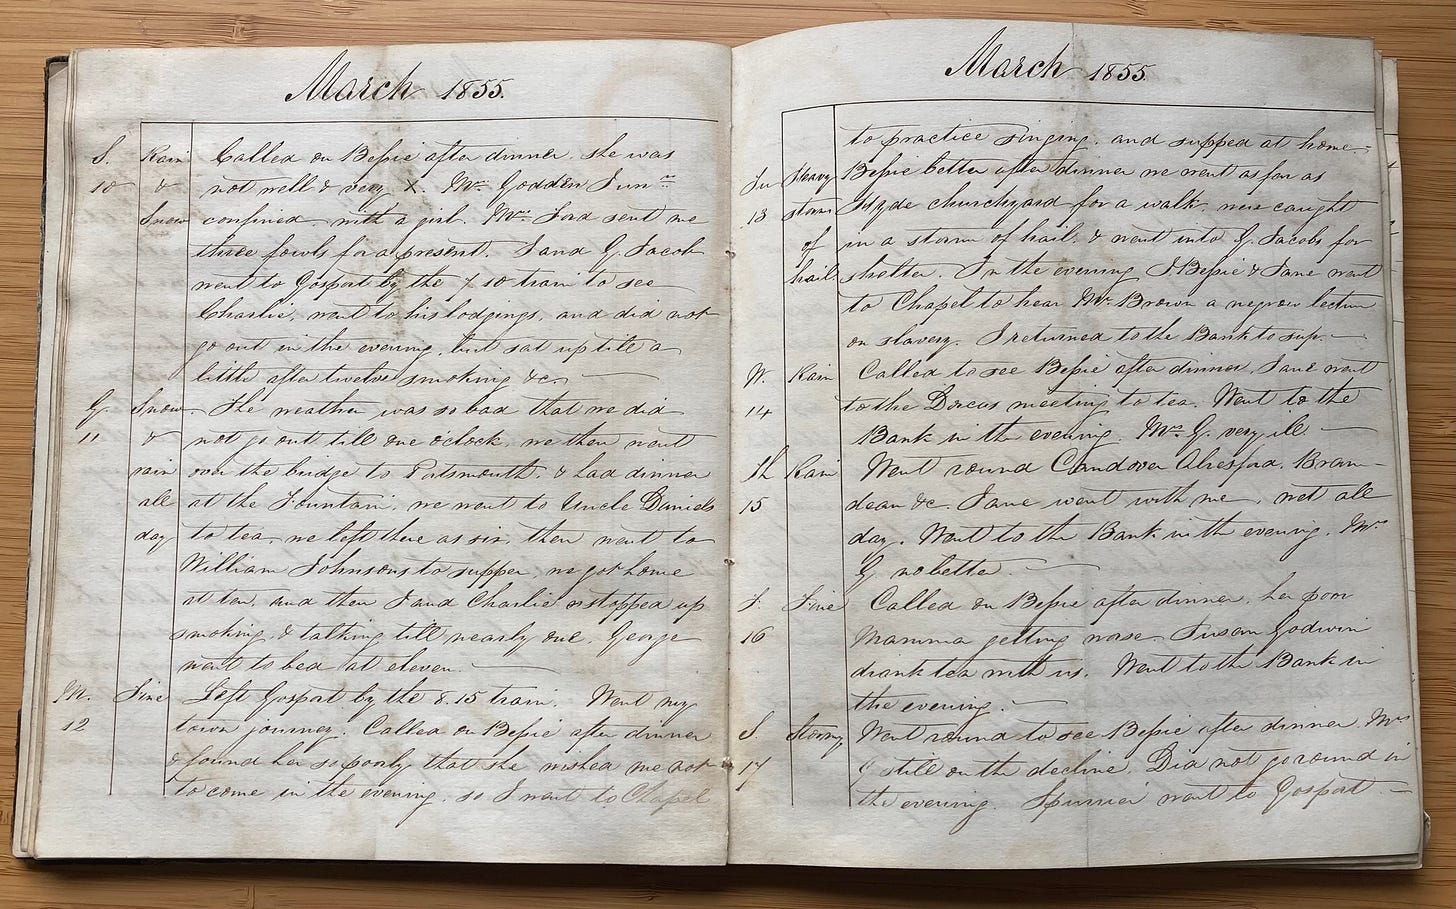 March 1855.
S. Rain Called on Bessie after dinner. she was
10 & not well & very X. Mrs. Godden Junr.
Snow confined with a girl. Mrs. Ford sent me
three fowls for a present. I and G. Jacob
went to Gosport by the 7.10 train to see
Charlie, went to his lodgings, and did not
go out in the evening, but sat up till a
little after twelve smoking &c.
Snow The weather was so bad that we did
11 & not go out till one oclock, we then went
rain over the bridge to Portsmouth, & had dinner
all at the Fountain, we went to Uncle Daniels
day to tea, we left there as six, then went to
William Johnsons to supper, we got home
at ten, and then I and Charlie stopped up
smoking & talking till nearly one. George
went to bed at eleven.
M. Fine Left Gosport by the 8.15 train. Went my
12 town journey. Called on Bessie after dinner
& found her so poorly that she wished me not
to come in the evening, so I went to Chapel
March 1855
to practice singing, and supped at home.
Tu Heavy Bessie better after dinner we went as far as
13 storms Hyde churchyard for a walk, were caught
of in a storm of hail, & went into G. Jacobs for
hail shelter. In the evening I Bessie & Jane went
to Chapel to hear Mr. Brown a negrow lecture
on slavery. I returned to the Bank to sup.
W. Rain Called to see Bessie after dinner, Jane went
14 to the Dorcas meeting to tea. Went to the
Bank in the evening. Mrs. G. very ill.
Th Rain Went round Candover Alresford. Bram-
15 dean &c. Jane went with me, wet all
day. Went to the Bank in the evening. Mrs
G. no better.
F. Fine Called on Bessie after dinner, her poor
16 Mamma getting worse. Susan Godwin
drank tea with us. Went to the Bank in
the evening.
S. Stormy Went round to see Bessie after dinner. Mrs
17 G still on the decline. Did not go round in
the evening. Spurrier went to Gosport.